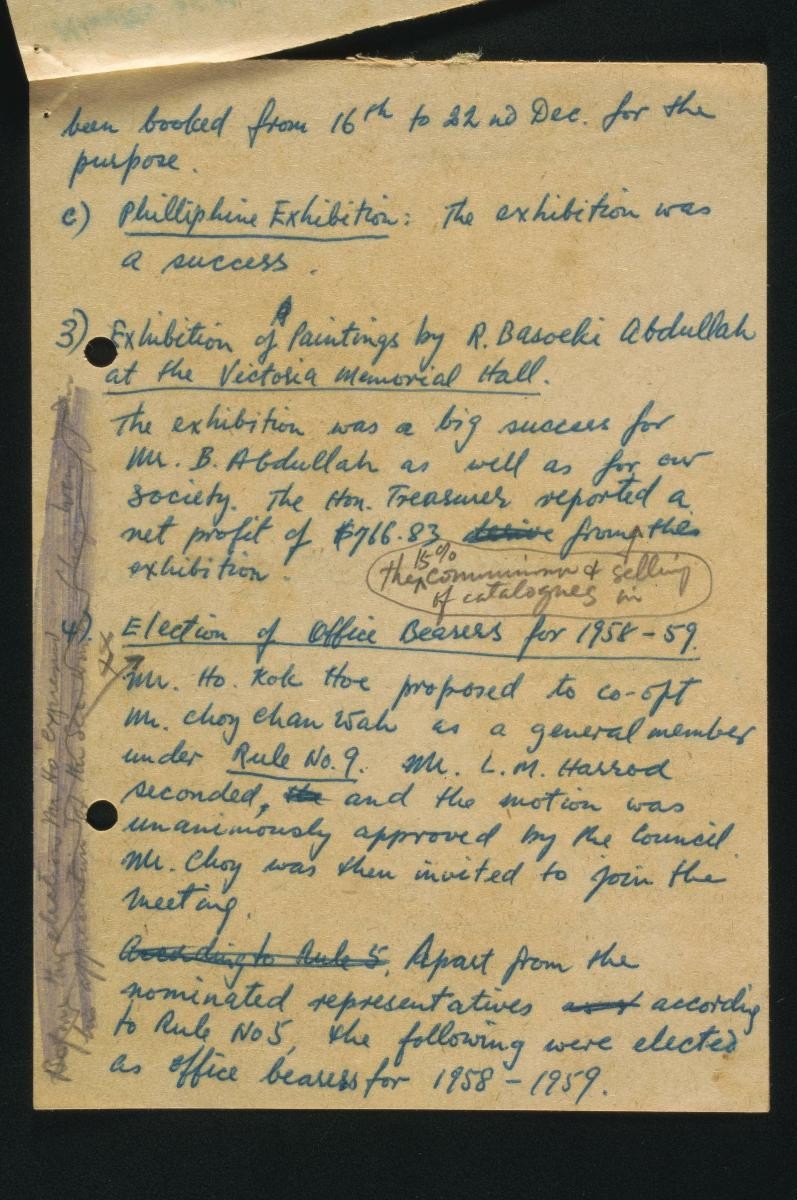 been booked from 16th to 22nd Dec. for the
purpose.
c) Philliphine Exhibition: The exhibition was
a success.
3) Exhibition of Paintings by R. Basoeki Abdullah
at the Victoria Memorial Hall.
The exhibition was a big success for
Mr. B. Abdullah as well as for our
Society. The Hon. Treasurer reported a
net profit of $766.83 derive from the
exhibition.
15%
the commission & selling
of catalogues in
4). Election of Office Bearers for 1958-59.
Mr. Ho. Kok Hoe proposed to co-opt
Mr. Choy Chan Wah as a general member
under Rule No. 9. Mr. L.M. Harrod
seconded, the and the motion was
unanimously approved by the Council.
Mr. Choy was then invited to join the
meeting.
According to Rule 5. Apart from the
nominated representatives according
to Rule No 5, the following were elected
as office bearers for 1958-1959.
the election Mr Ho expressed
his appreciation to the